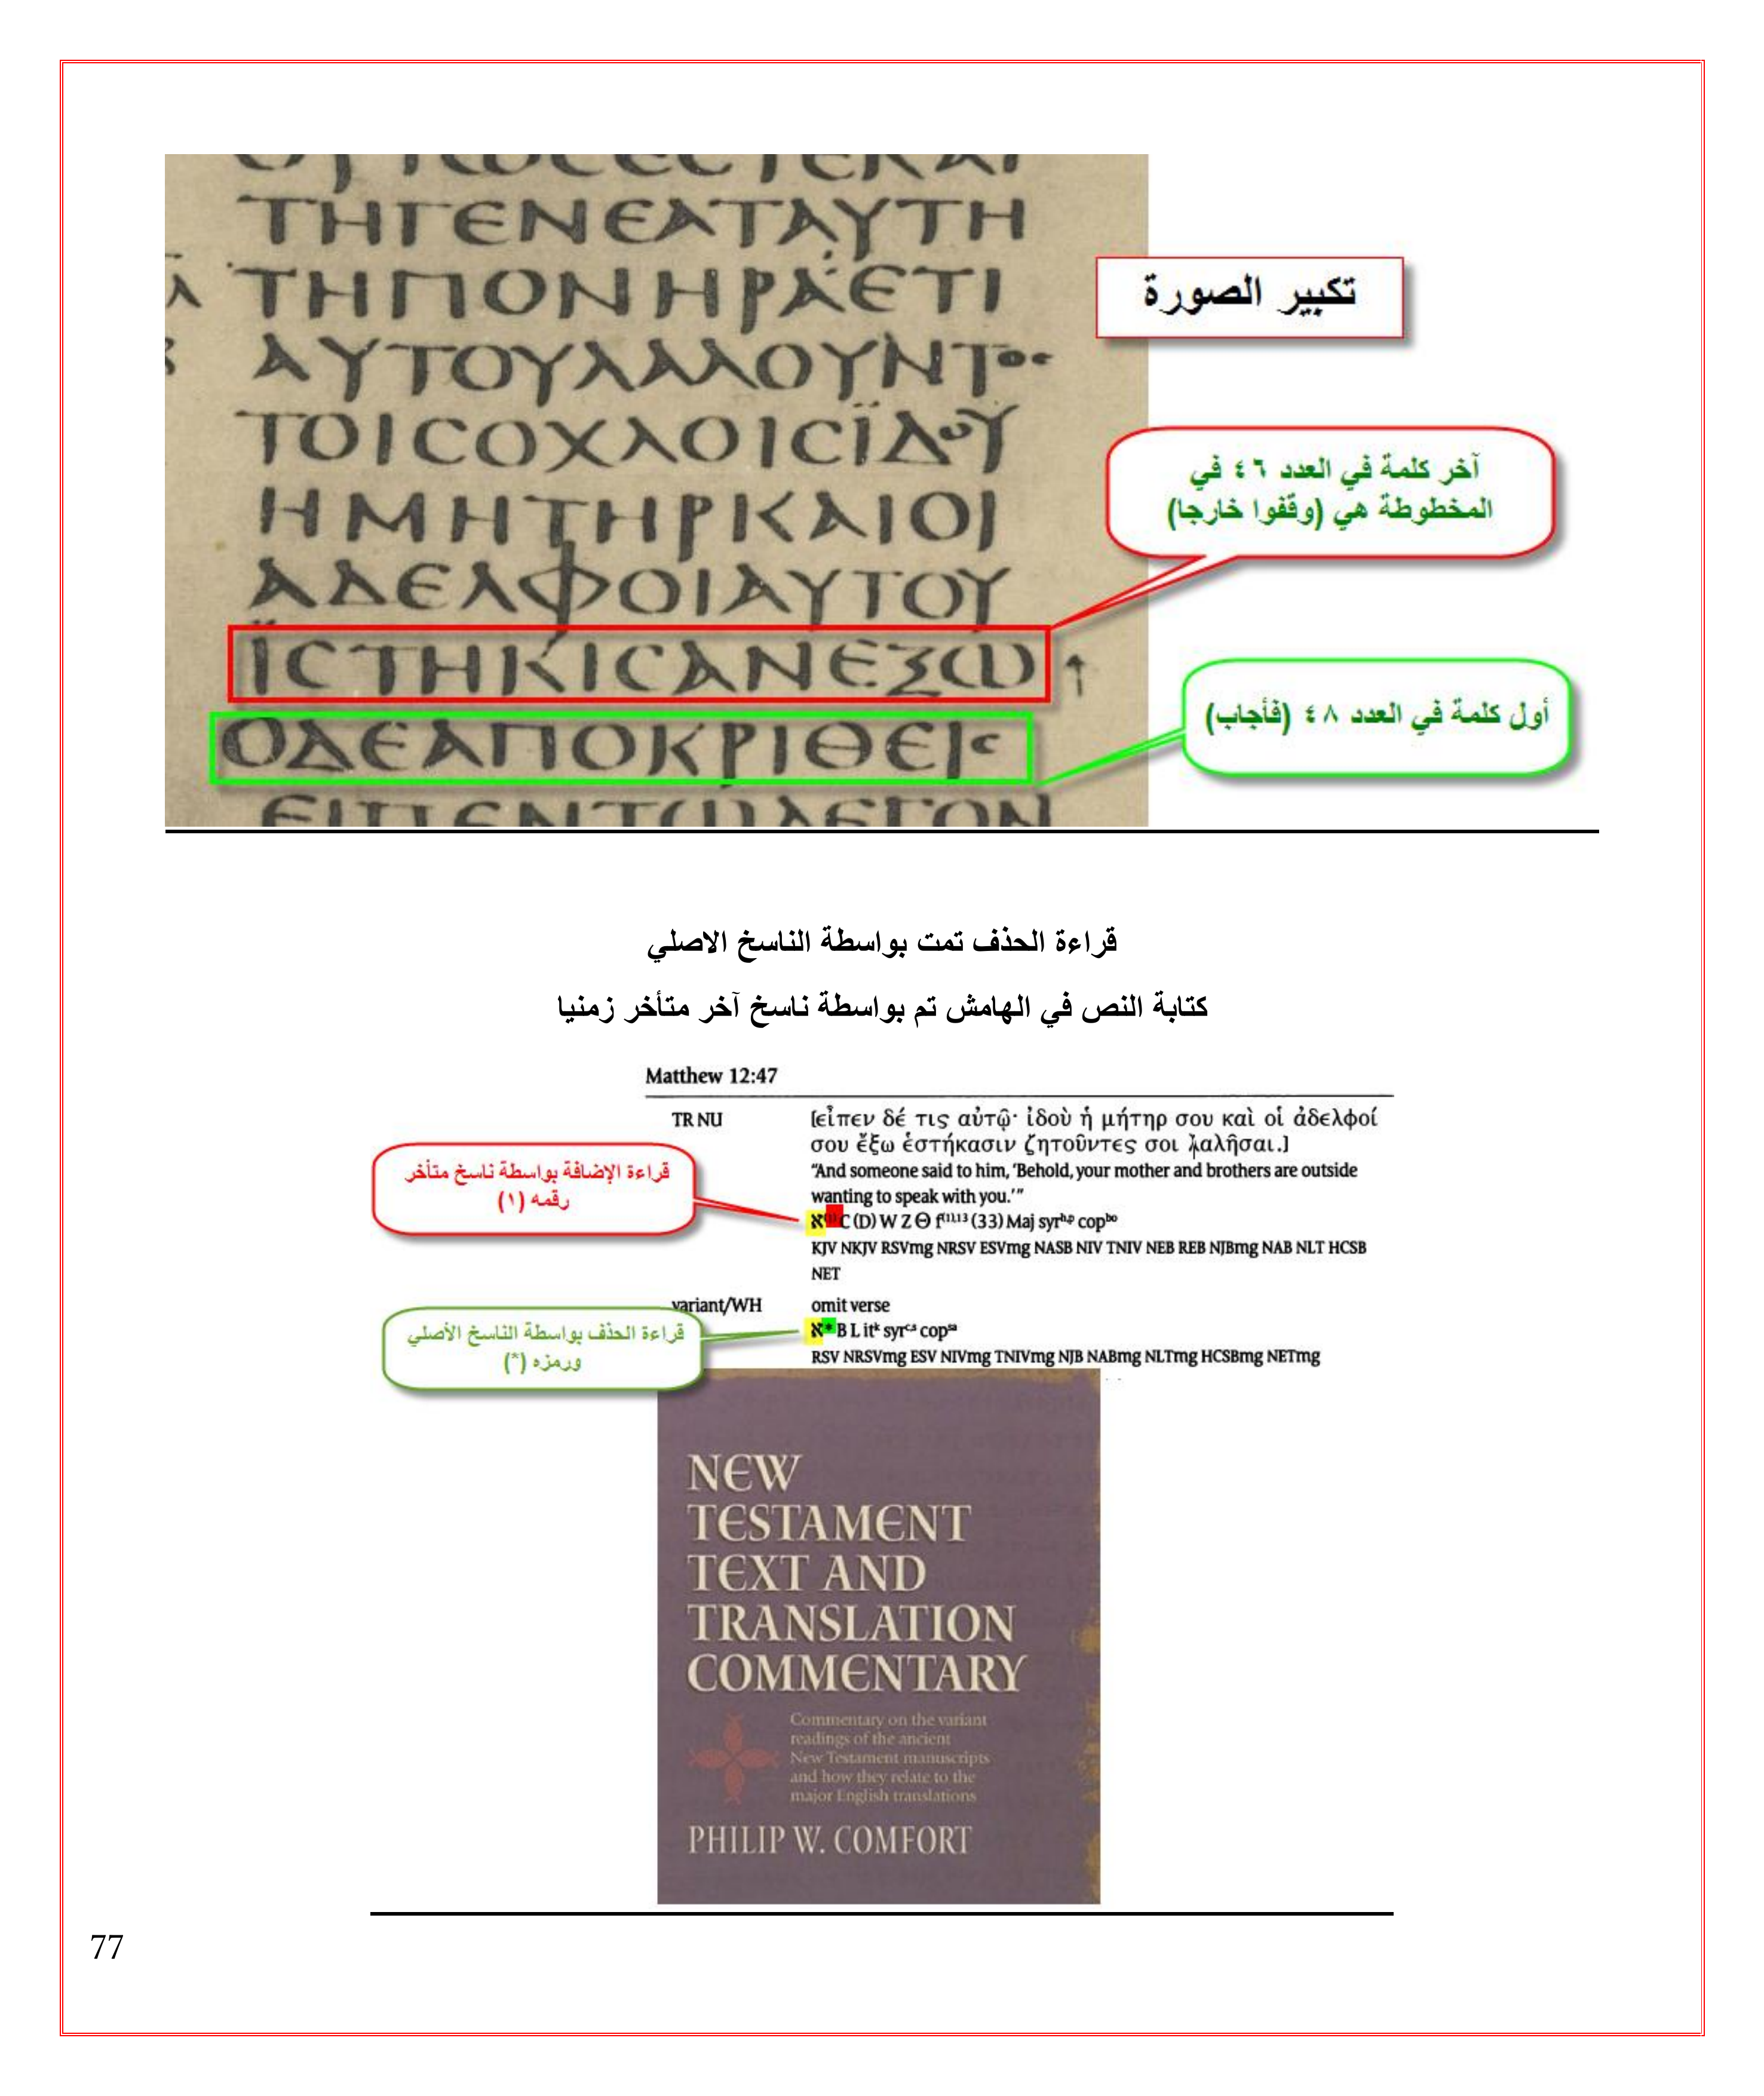 ΤΗΓΕΝΕΑΤΑΥΤΗ
ΤΗΠΟΝΗΡΑΕΤΙ
ΑΥΤΟΥΛΑΛΟΥΝΤΟC
ΤΟΙCΟΧΛΟΙCΪΔΟΥ
ΗΜΗΤΗΡΚΑΙΟΙ
ΑΔΕΛΦΟΙΑΥΤΟΥ
ΪCΤΗΚΙCΑΝΕΞΩ ↑
ΟΔΕΑΠΟΚΡΙΘΕΙC
ΕΙΠΕΝΤΩΛΕΓΟΝ
تكبير الصورة
آخر كلمة في العدد ٤٦ في
المخطوطة هي (وقفوا خارجا)
أول كلمة في العدد ٤٨ (فأجاب)
قراءة الحذف تمت بواسطة الناسخ الاصلي
كتابة النص في الهامش تم بواسطة ناسخ آخر متأخر زمنيا
Matthew 12:47
TR NU [εἶπεν δέ τις αὐτῷ· ἰδοὺ ἡ μήτηρ σου καὶ οἱ ἀδελφοί
σου ἔξω ἑστήκασιν ζητοῦντές σοι λαλῆσαι.]
“And someone said to him, ‘Behold, your mother and brothers are outside
wanting to speak with you.’”
א(1) C (D) W Z Θ f(1),13 (33) Maj syrh,p copbo
KJV NKJV RSVmg NRSV ESVmg NASB NIV TNIV NEB REB NJBmg NAB NLT HCSB
NET
قراءة الإضافة بواسطة ناسخ متأخر
رقمه (١)
variant/WH omit verse
א* B L itk syrc,s copsa
RSV NRSVmg ESV NIVmg TNIVmg NJB NABmg NLTmg HCSBmg NETmg
قراءة الحذف بواسطة الناسخ الأصلي
ورمزه (*)
NEW
TESTAMENT
TEXT AND
TRANSLATION
COMMENTARY
Commentary on the variant
readings of the ancient
New Testament manuscripts
and how they relate to the
major English translations
PHILIP W. COMFORT
77